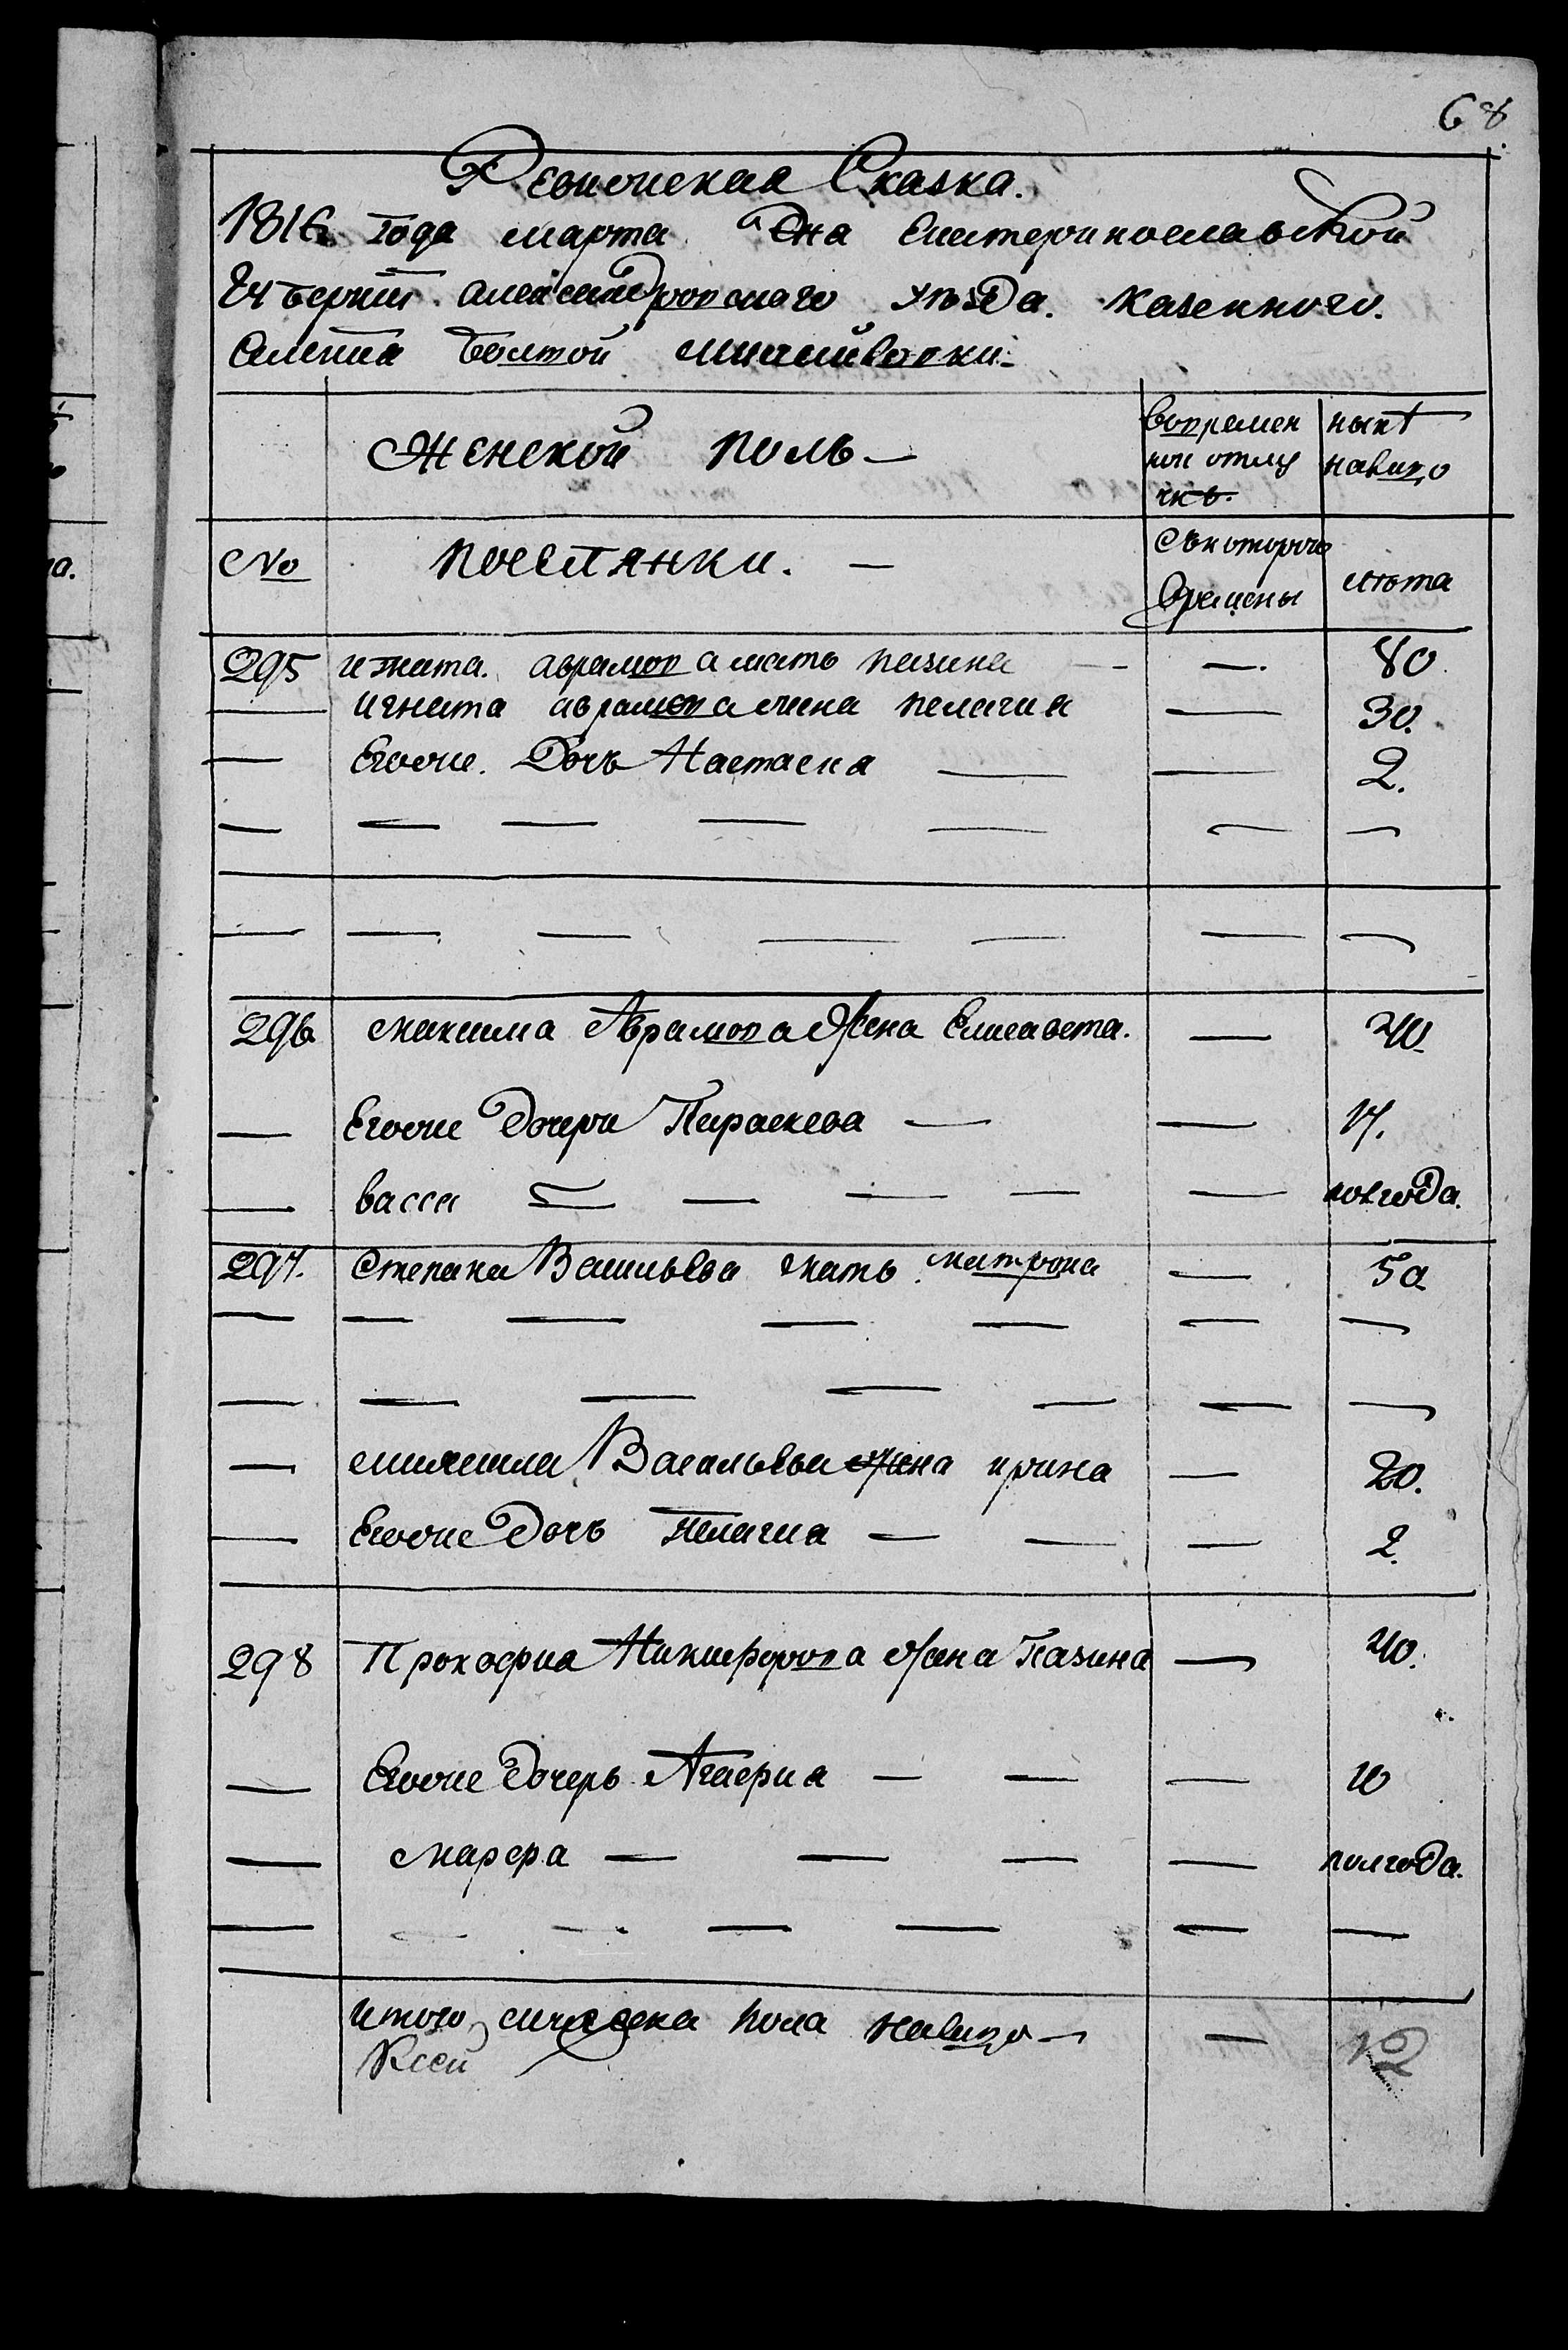 68.
Ревижская Сказка.
1816 года марта Дна Екатеринославской
Губерний александровскаго уезда. казенного.
Селения Белтой михайловки.
Женской поль —
вовремен
ной отлу
чкъ.
нынѣ
налицо
№
поселянки. —
Съкоторого
Времены
лѣта
295 игната. аврамова мать пазина — — 80
— игната аврамова жина пелагия — 30.
— Егоже. Дочь Настасия — — 2.
— — — — — — —
— — — — — — —
296 максима Аврамова Жена Елисавета. — 40
— Егоже Дочери Параскева — — 17.
— васса — — — — — полгода.
297. Степана Васильева мать матрона — 50
— — — — — — —
— — — — — — —
— михаила Васильева жена ирина — 20.
— Егоже Дочь пелагиа — — — 2.
298 Прокофиа Никифорова Жена Пазина — 40.
— Егоже Дочерь Агафиа — — — 10
— марфа — — — — полгода.
— — — — — — —
итого женска пола налицо — — 12